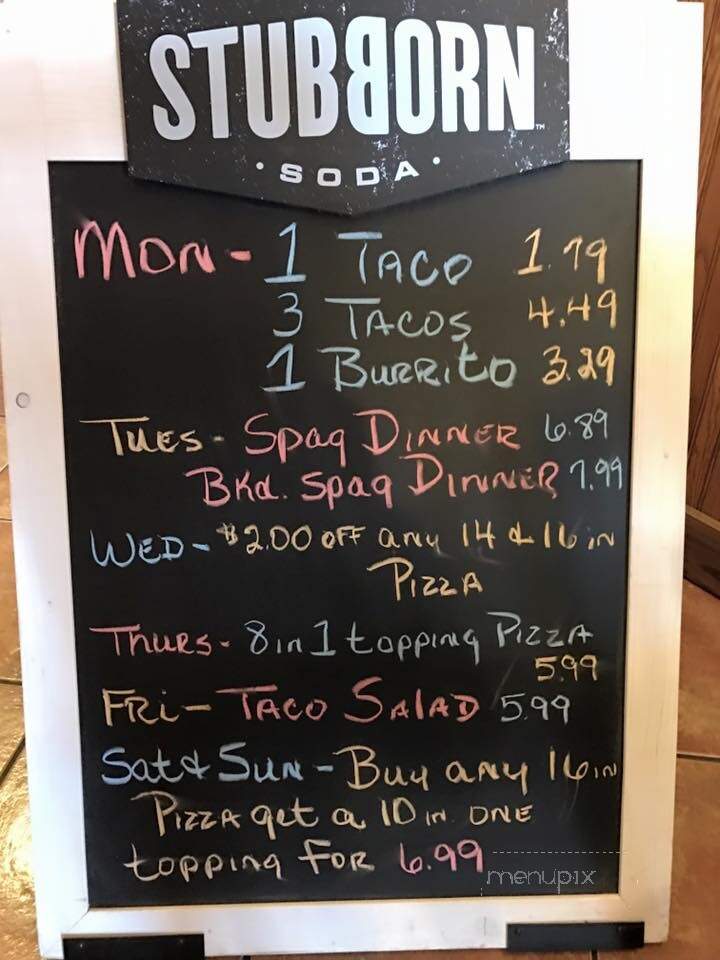 STUBBORN
SODA
Mon - 1 Taco 1.79
3 Tacos 4.49
1 Burrito 3.29
Tues - Spag Dinner 6.89
Bkd. Spag Dinner 7.99
Wed - $2.00 off any 14 & 16 in
Pizza
Thurs - 8 in 1 topping Pizza
5.99
Fri - Taco Salad 5.99
Sat & Sun - Buy any 16 in
Pizza get a 10 in one
topping for 6.99
menupix